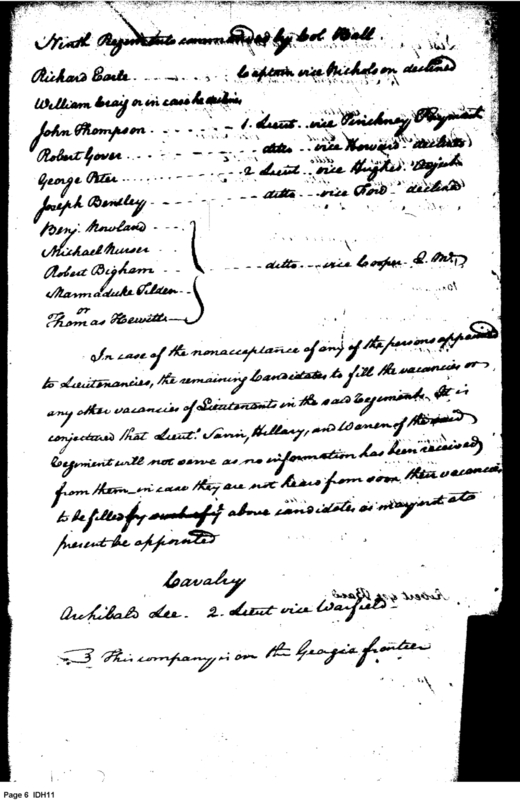 Ninth Regiment commanded by Col. Hall.
Richard Earle . . . . . . Captain vice Nicholson declined
William Craig or in case he declines
John Thompson . . . . . . 1. Lieut. vice Pinckney Paymast.
Robert Gover . . . . . . ditto vice Howard declined
George Peter . . . . . . 2 Lieut. vice Hughes
Joseph Bentley . . . . . . ditto vice Ford declined
Benj. Nowland
Michael Nurser
Robert Bigham . . . . . . ditto vice Cooper Q. Mr.
Marmaduke Tilden
or
Thomas Hewitt
In case of the nonacceptance of any of the persons appointed
to Lieutenancies, the remaining Candidates to fill the vacancies or
any other vacancies of Lieutenants in the said Regiment. It is
conjectured that Lieuts. Savin, Hillary, and Warren of the said
Regiment will not serve as no information has been received
from them in case they are not heard from soon their vacancies
to be filled by such of ye above candidates as may not at
present be appointed
Cavalry
Archibald Lee. 2. Lieut vice Warfield
This company is on the Georgia frontier
Page 6 IDH11